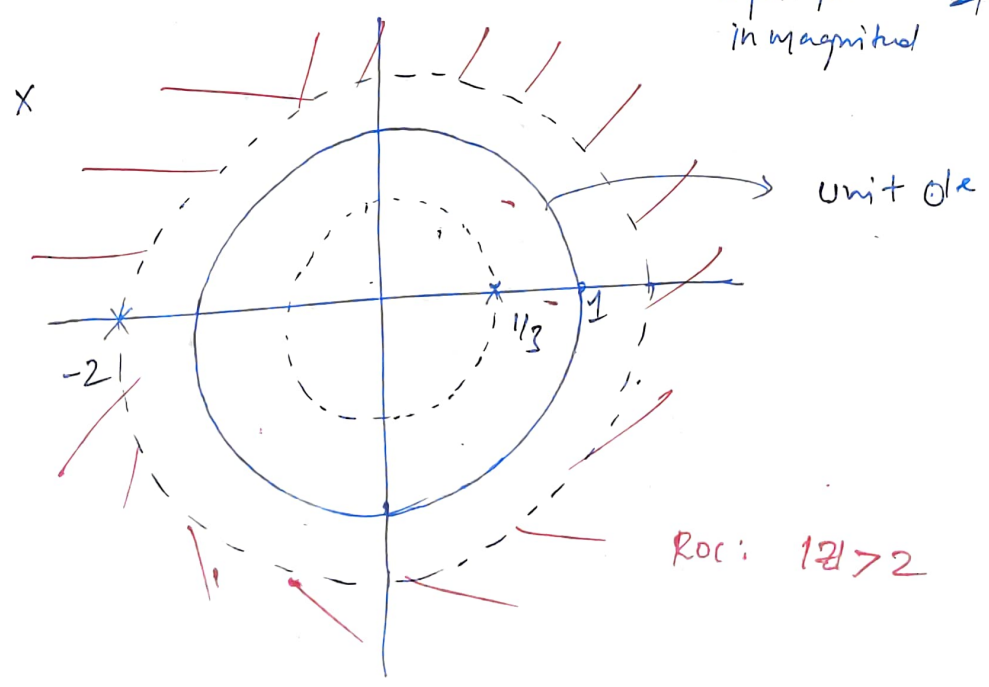 in magnitud
X
unit ole
1/3
1
-2
ROC: |Z|>2